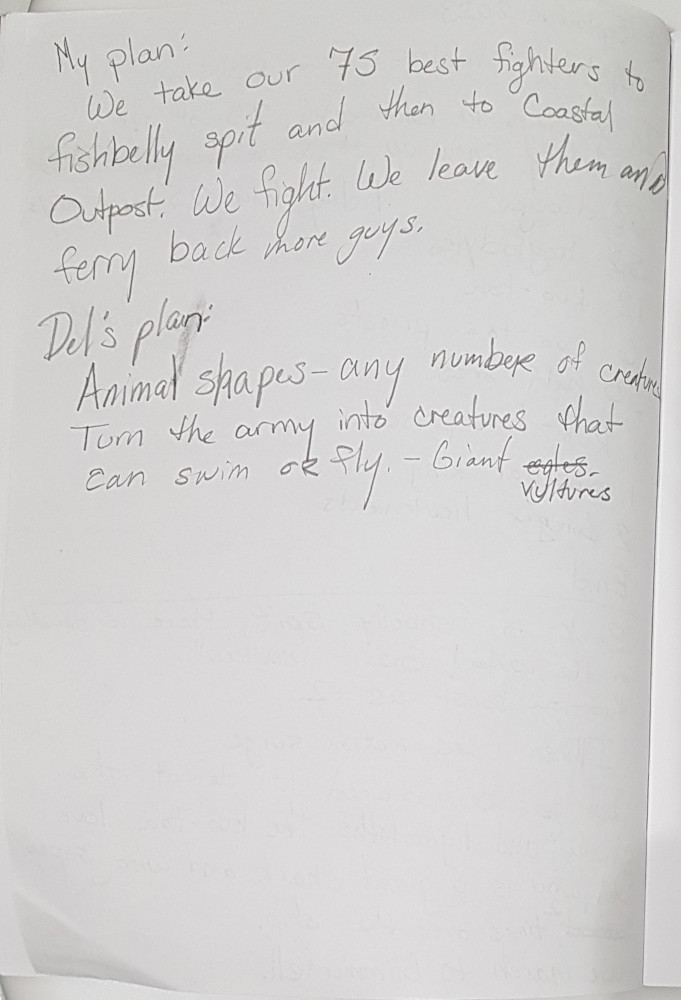 My plan:
We take our 75 best fighters to
fishbelly spit and then to Coastal
Outpost. We fight. We leave them and
ferry back more guys.
Del's plan:
Animal shapes - any number of creatures
Turn the army into creatures that
can swim or fly. - Giant eagles.
vultures